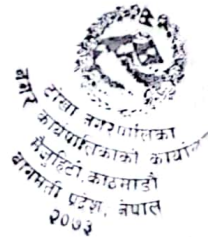 टोखा नगरपालिका
नगर कार्यपालिकाको कार्यालय
काठमाडौं
बागमती प्रदेश, नेपाल
२०७३